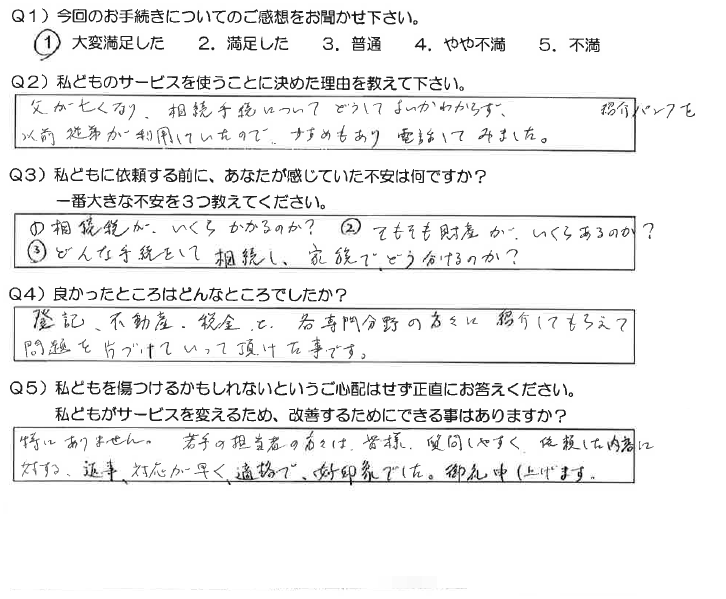 Q1）今回のお手続きについてのご感想をお聞かせ下さい。
① 大変満足した　2．満足した　3．普通　4．やや不満　5．不満
Q2）私どものサービスを使うことに決めた理由を教えて下さい。
父が亡くなり、相続手続についてどうしてよいかわからず、　紹介バンクを
以前 従弟が利用していたので、すすめもあり 電話してみました。
Q3）私どもに依頼する前に、あなたが感じていた不安は何ですか？
一番大きな不安を３つ教えてください。
① 相続税が、いくらかかるのか？ ② そもそも財産が、いくらあるのか？
③ どんな手続をして 相続し、家族で、どう分けるのか？
Q4）良かったところはどんなところでしたか？
登記、不動産、税金、と、各専門分野の方々に 紹介してもらえて
問題を片づけていって頂けた事です。
Q5）私どもを傷つけるかもしれないというご心配はせず正直にお答えください。
私どもがサービスを変えるため、改善するためにできる事はありますか？
特にありません。若手の担当者の方々は、皆様、質問しやすく、依頼した内容に
対する、返事、対応が早く、適格で、好印象でした。御礼申し上げます。